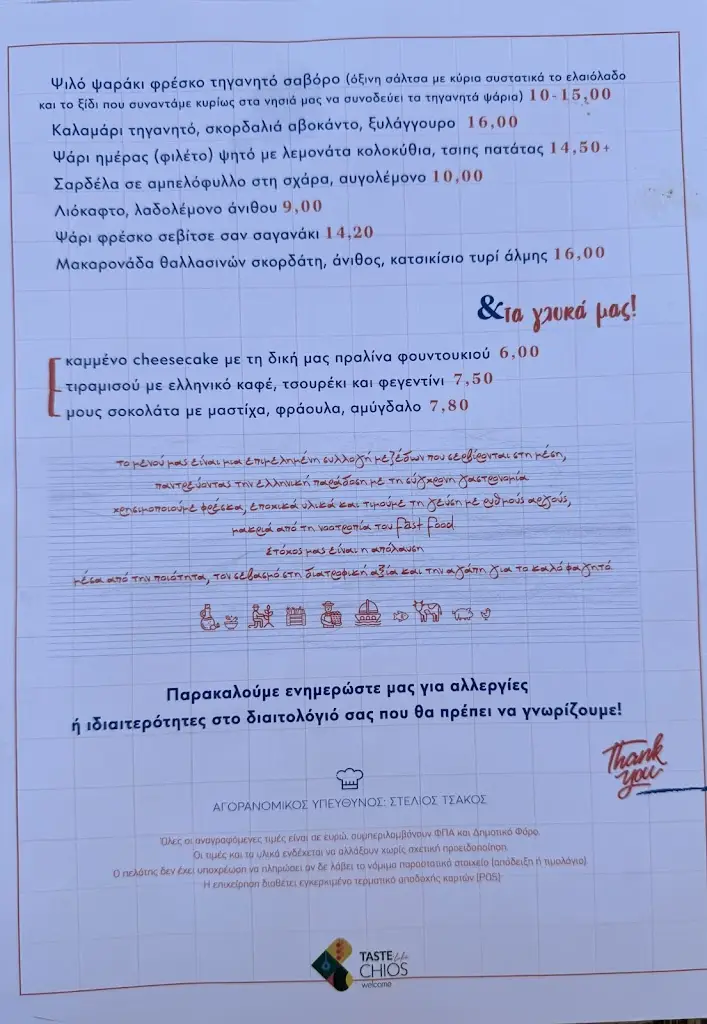 Ψιλό ψαράκι φρέσκο τηγανητό σαβόρο (όξινη σάλτσα με κύρια συστατικά το ελαιόλαδο
και το ξίδι που συναντάμε κυρίως στα νησιά μας να συνοδεύει τα τηγανητά ψάρια) 10-15,00
Καλαμάρι τηγανητό, σκορδαλιά αβοκάντο, ξυλάγγουρο 16,00
Ψάρι ημέρας (φιλέτο) ψητό με λεμονάτα κολοκύθια, τσιπς πατάτας 14,50+
Σαρδέλα σε αμπελόφυλλο στη σχάρα, αυγολέμονο 10,00
Λιόκαφτο, λαδολέμονο άνιθου 9,00
Ψάρι φρέσκο σεβίτσε σαν σαγανάκι 14,20
Μακαρονάδα θαλλασινών σκορδάτη, άνιθος, κατσικίσιο τυρί άλμης 16,00
& τα γλυκά μας!
καμμένο cheesecake με τη δική μας πραλίνα φουντουκιού 6,00
τιραμισού με ελληνικό καφέ, τσουρέκι και φεγεντίνι 7,50
μους σοκολάτα με μαστίχα, φράουλα, αμύγδαλο 7,80
το μενού μας είναι μια επιμελημένη συλλογή μεζέδων που σερβίρονται στη μέση,
παντρεύοντας την ελληνική παράδοση με τη σύγχρονη γαστρονομία
χρησιμοποιούμε φρέσκα, εποχικά υλικά και τιμούμε τη γεύση με ρυθμούς αργούς,
μακριά από τη νοοτροπία του fast food
στόχος μας είναι η απόλαυση
μέσα από την ποιότητα, τον σεβασμό στη διατροφική αξία και την αγάπη για το καλό φαγητό
Παρακαλούμε ενημερώστε μας για αλλεργίες
ή ιδιαιτερότητες στο διαιτολόγιό σας που θα πρέπει να γνωρίζουμε!
Thank
you
ΑΓΟΡΑΝΟΜΙΚΟΣ ΥΠΕΥΘΥΝΟΣ: ΣΤΕΛΙΟΣ ΤΣΑΚΟΣ
Όλες οι αναγραφόμενες τιμές είναι σε ευρώ, συμπεριλαμβάνουν ΦΠΑ και Δημοτικό Φόρο.
Οι τιμές και τα υλικά ενδέχεται να αλλάξουν χωρίς σχετική προειδοποίηση.
Ο πελάτης δεν έχει υποχρέωση να πληρώσει αν δε λάβει το νόμιμο παραστατικό στοιχείο (απόδειξη ή τιμολόγιο)
Η επιχείρηση διαθέτει εγκεκριμένο τερματικό αποδοχής καρτών (POS)
TASTE like
CHIOS
welcome